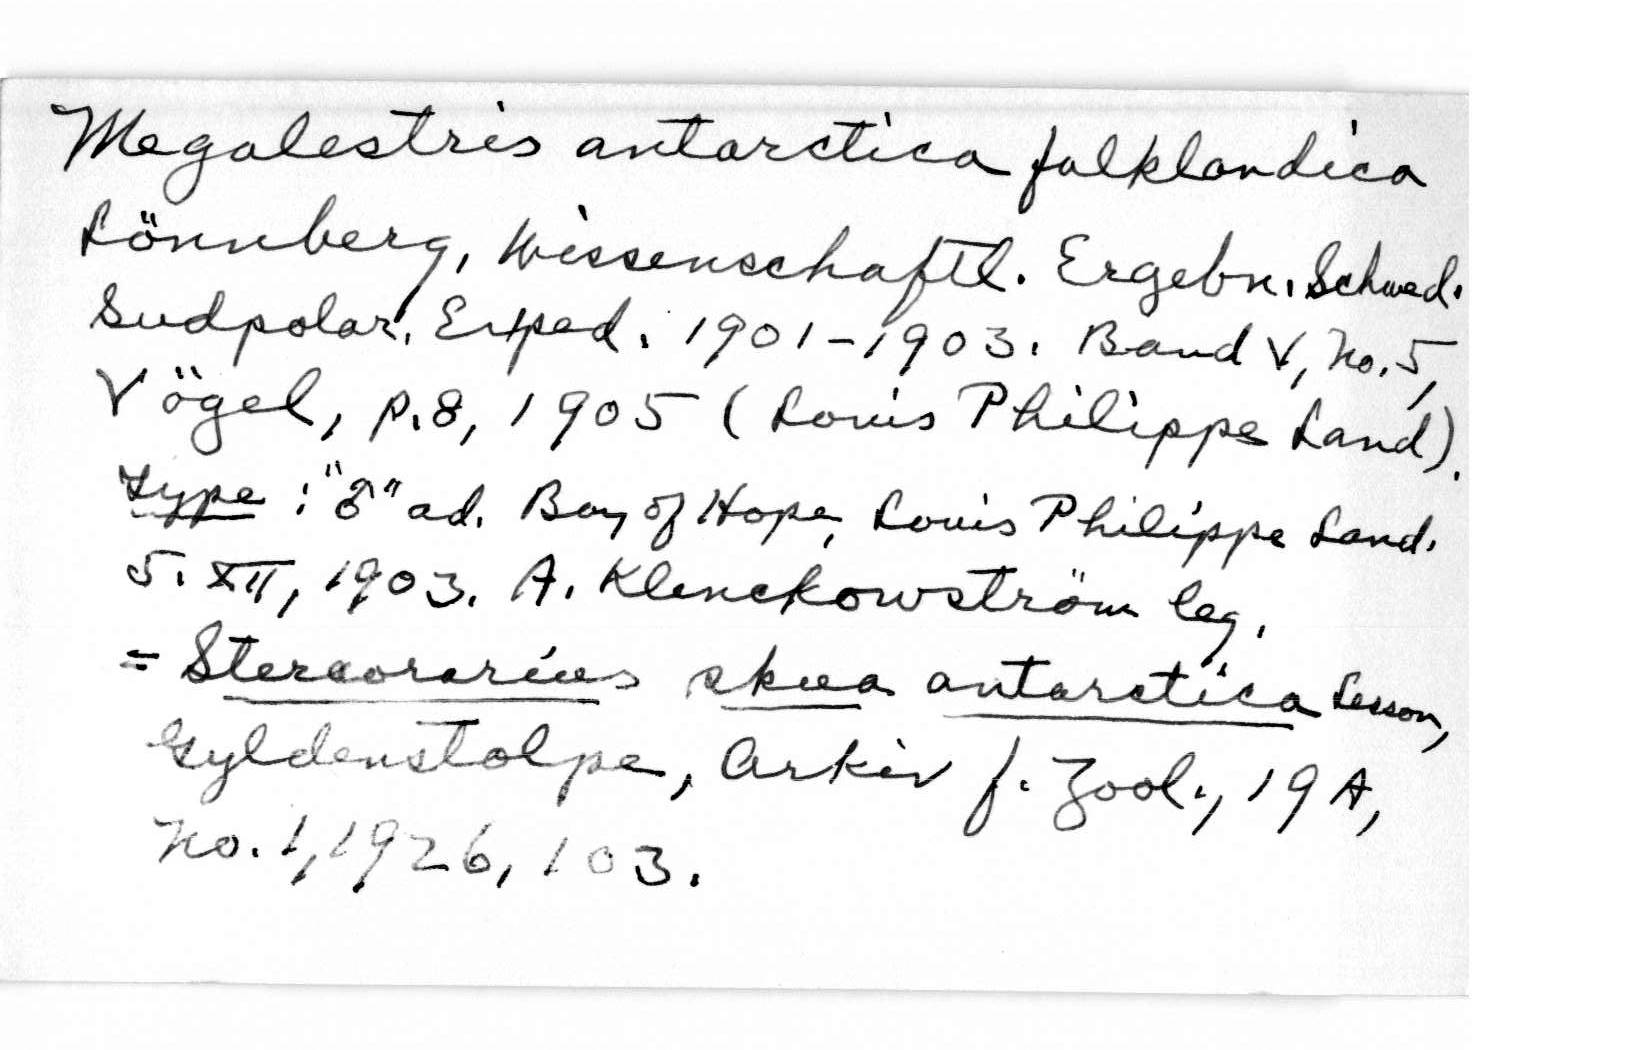 Megalestris antarctica falklandica
Lönnberg, Wissenschaftl. Ergebn. Schwed.
Sudpolar. Exped. 1901-1903. Band V, No. 5,
Vögel, p. 8, 1905 (Louis Philippe Land).
Type : "♂" ad. Bay of Hope, Louis Philippe Land.
5. XII, 1903. A. Klenckowström leg.
= Stercorarius skua antarctica Lesson,
Gyldenstolpe, Arkiv f. Zool., 19 A,
No. 1, 1926, 103.